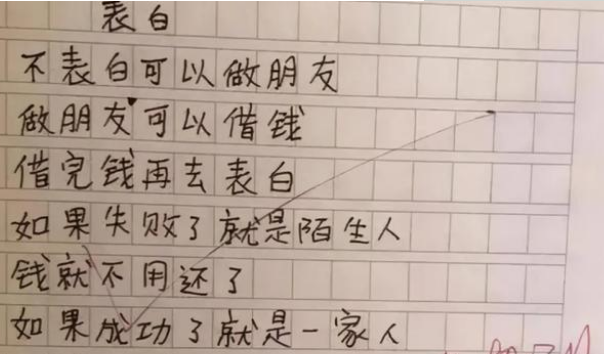 表白
不表白可以做朋友
做朋友可以借钱
借完钱再去表白
如果失败了就是陌生人
钱就不用还了
如果成功了就是一家人